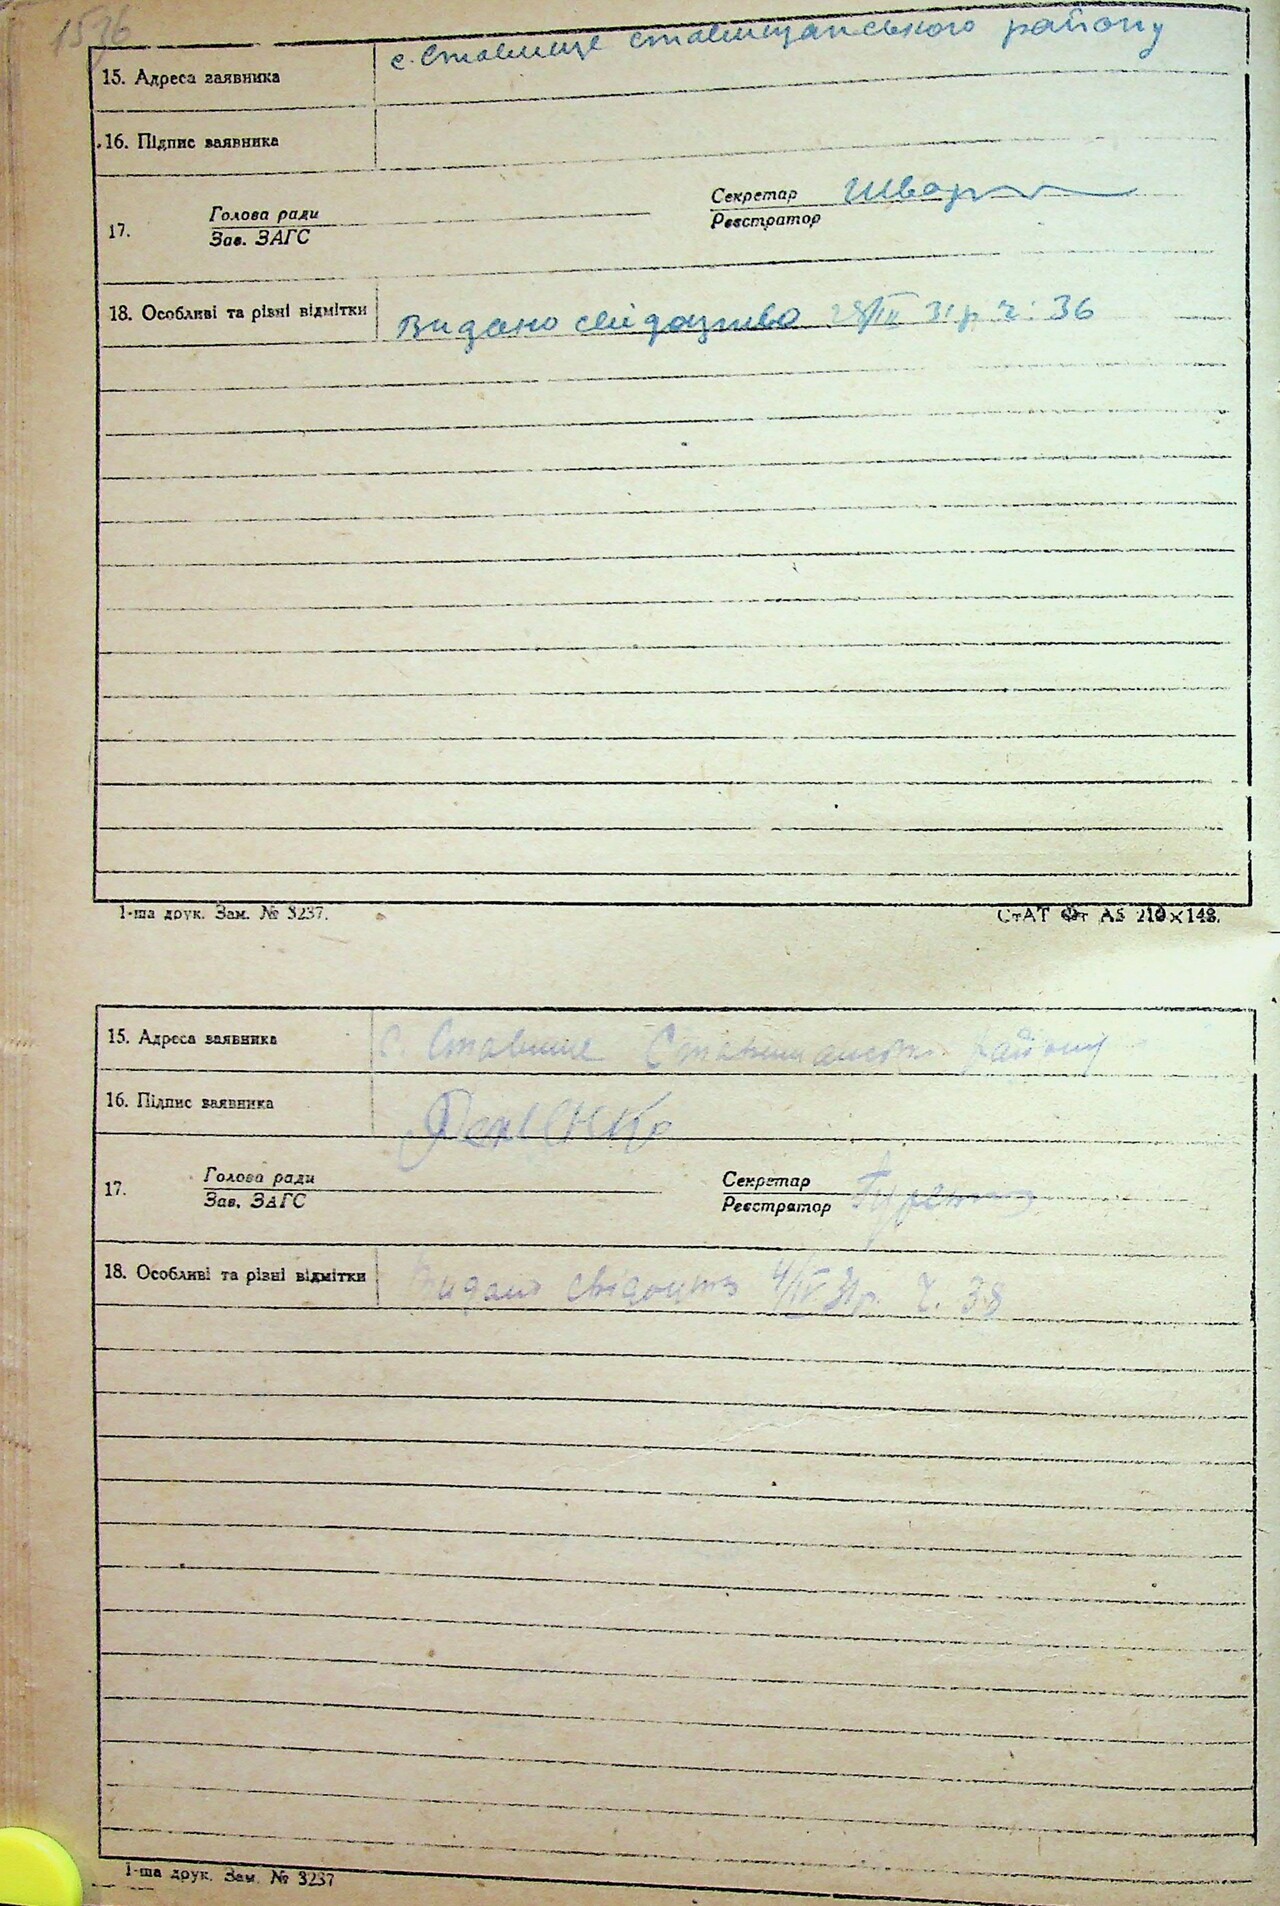 15. Адреса заявника с. Ставище ставищанського району
16. Підпис заявника
17. Голова ради
Зав. ЗАГС
Секретар
Реєстратор
18. Особливі та різні відмітки Видано свідоцтво 28/III 31 р ч: 36
1-ша друк. Зам. № 3237. СтАТ Фт А5 210×148.
15. Адреса заявника с. Ставище Ставищанськ. району
16. Підпис заявника
17. Голова ради
Зав. ЗАГС
Секретар
Реєстратор
18. Особливі та різні відмітки Видано свідоцтво 4/IV 31р. Ч. 38
1-ша друк. Зам. № 3237